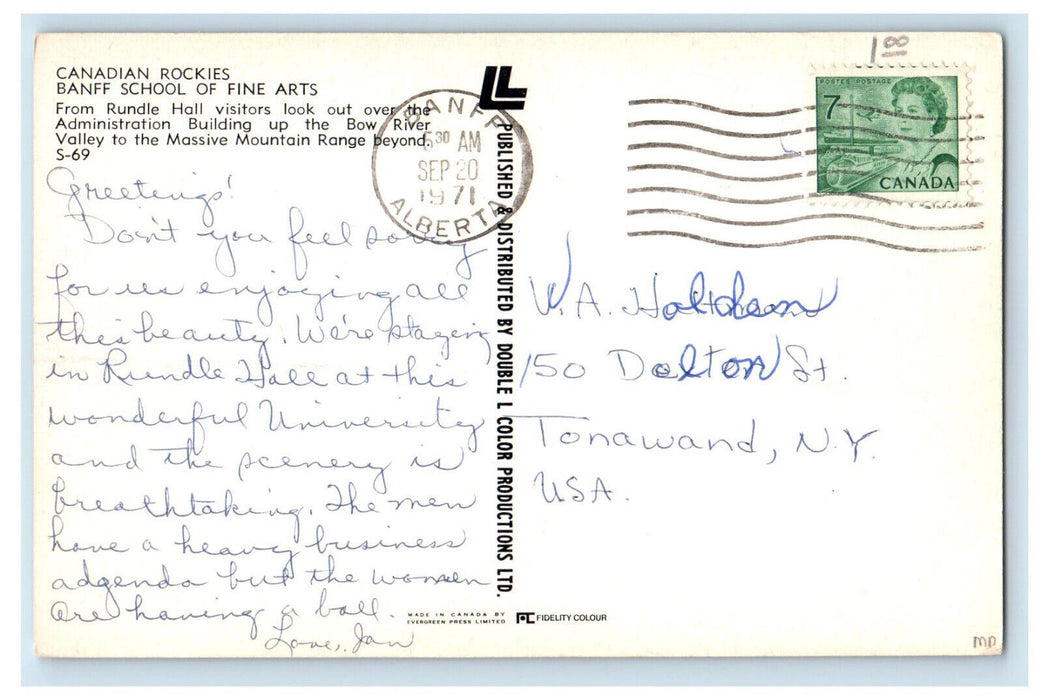 1 00
CANADIAN ROCKIES
BANFF SCHOOL OF FINE ARTS
From Rundle Hall visitors look out over the
Administration Building up the Bow River
Valley to the Massive Mountain Range beyond.
S-69
BANFF
5 30 AM
SEP 20
1971
ALBERTA
POSTES POSTAGE
7
CANADA
Greetings!
Don't you feel sorry
for us enjoying all
this beauty. We're staying
in Rundle Hall at this
wonderful University
and the scenery is
breathtaking. The men
have a heavy business
adgenda but the women
are having a ball.
Love, Jan
PUBLISHED & DISTRIBUTED BY DOUBLE L COLOR PRODUCTIONS LTD.
W.A.
150 Dalton St.
Tonawand, N.Y.
USA.
MADE IN CANADA BY
EVERGREEN PRESS LIMITED
FIDELITY COLOUR
MD